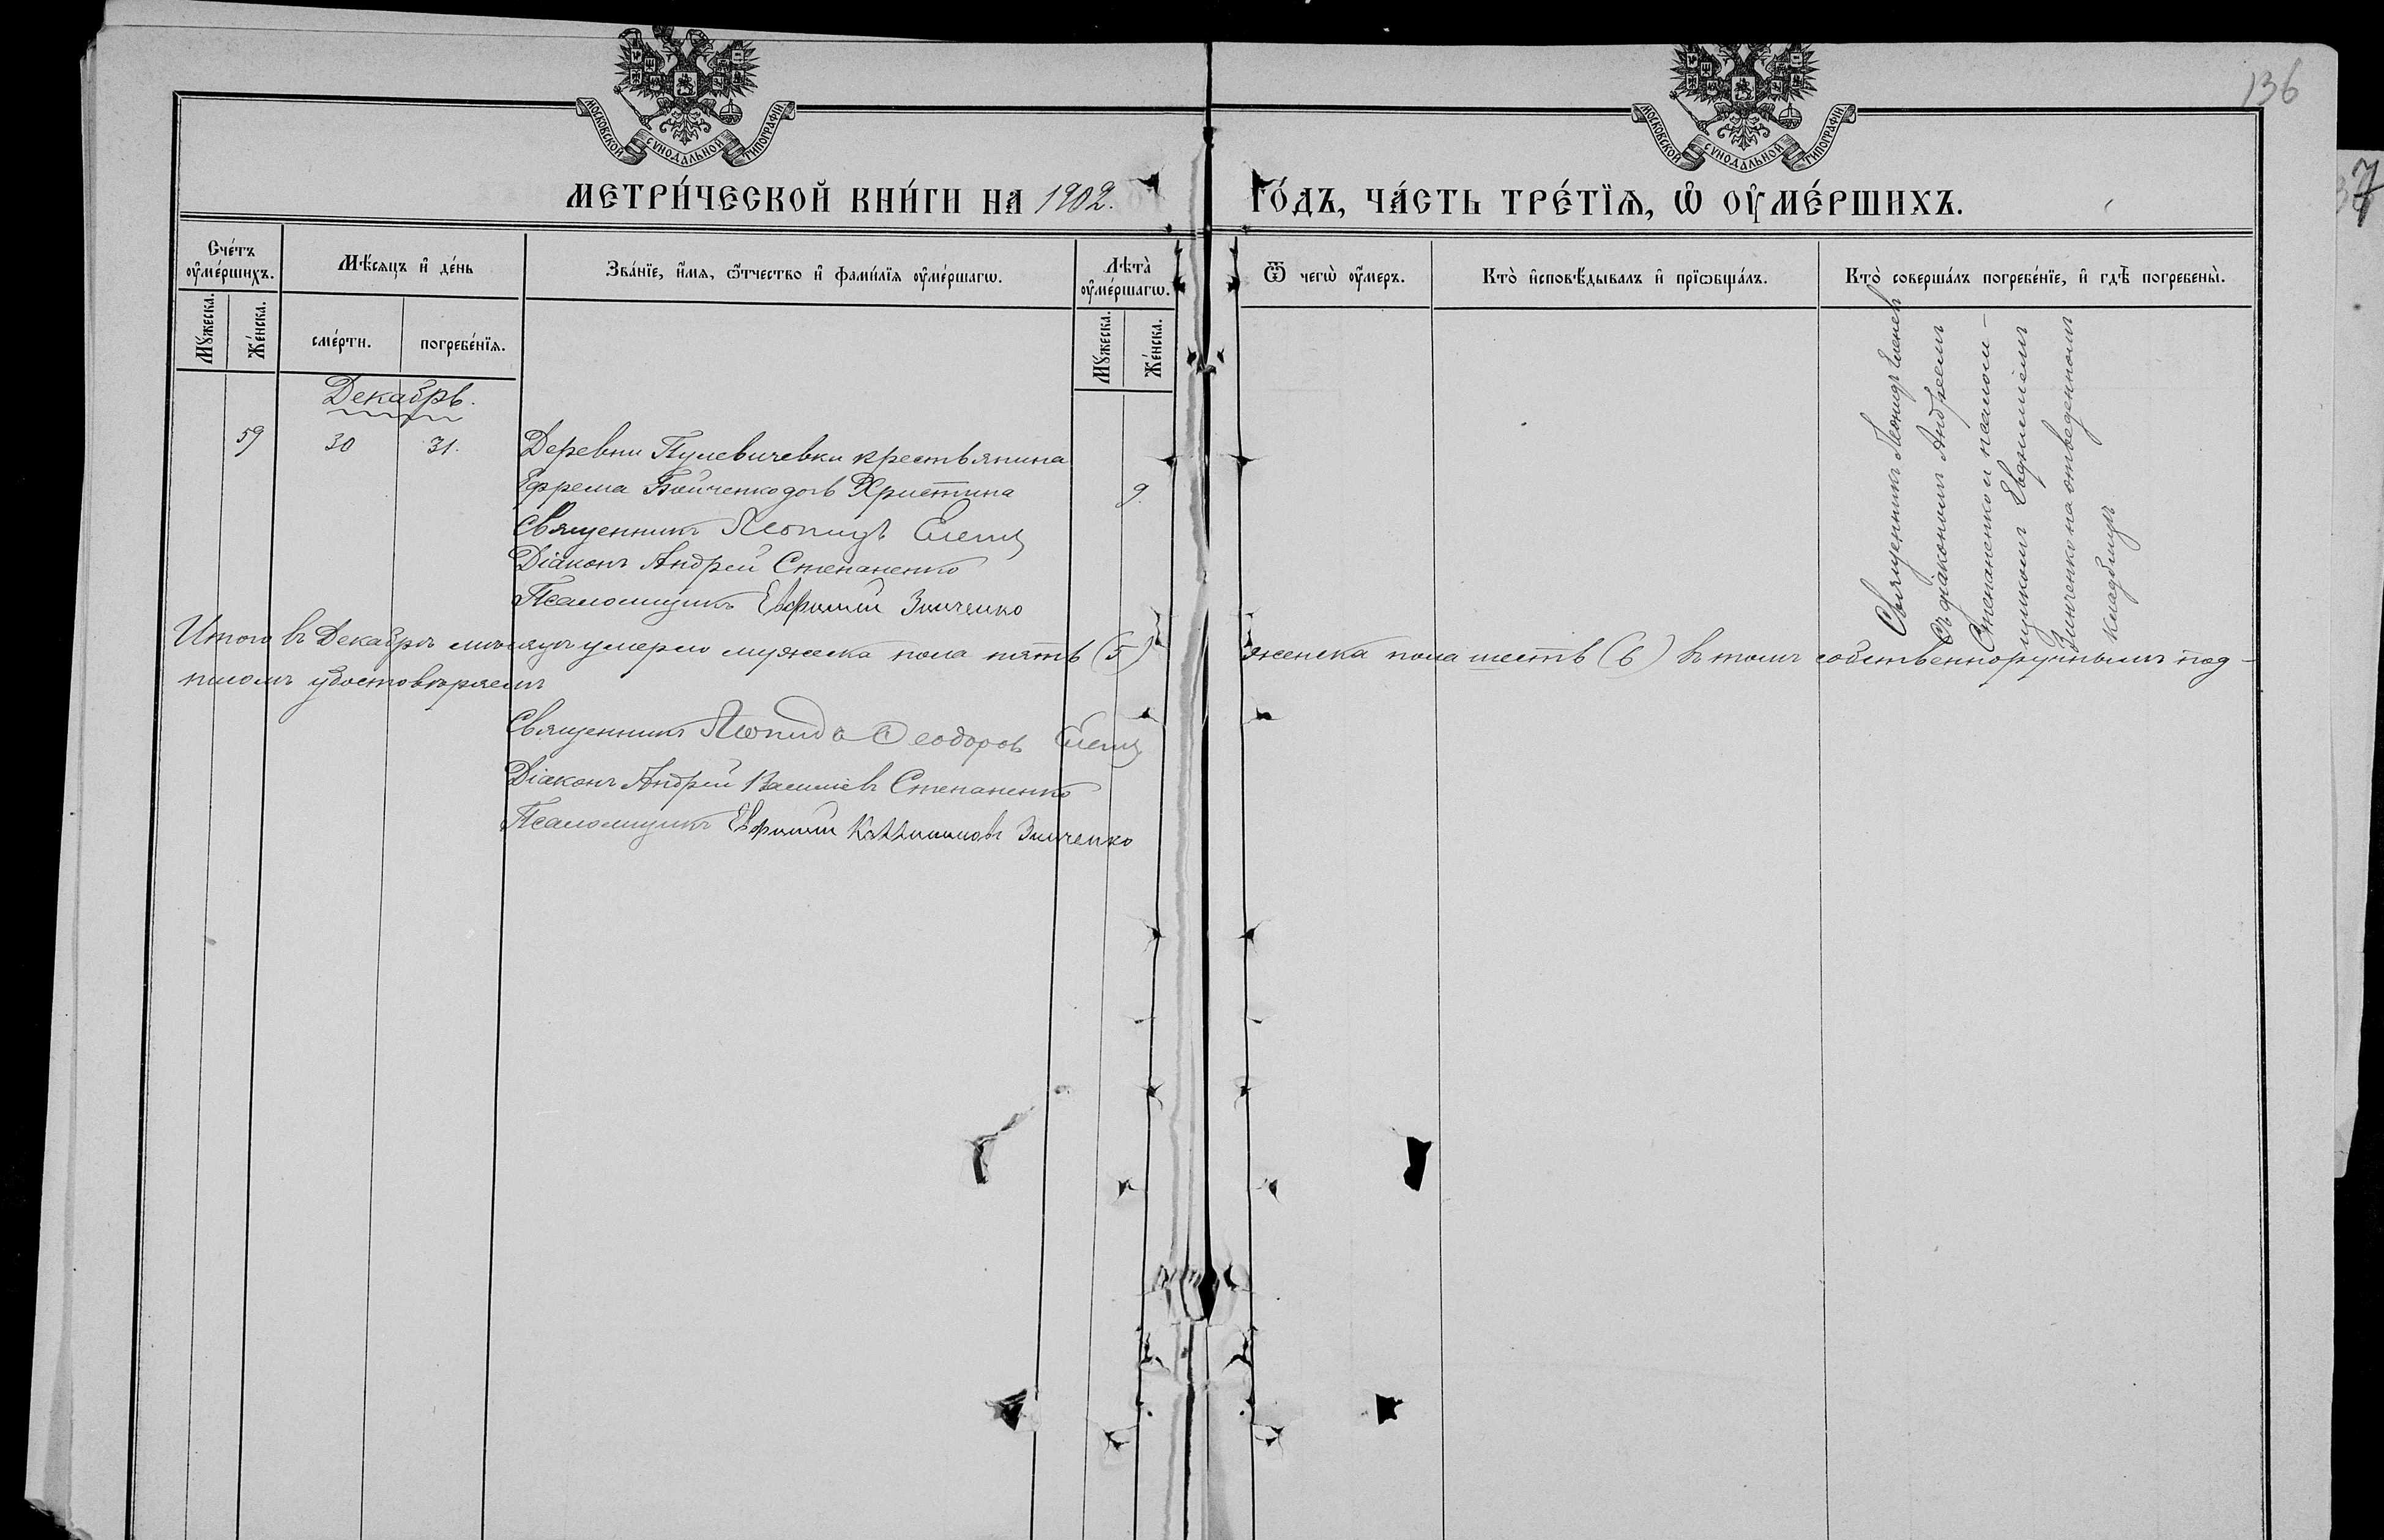 136
37
МОСКОВСКОЙ СѴНОДАЛЬНОЙ ТИПОГРАФІИ
МОСКОВСКОЙ СѴНОДАЛЬНОЙ ТИПОГРАФІИ
МЕТРИ́ЧЕСКОЙ КНИ́ГИ НА 1902.
ГО́ДЪ, ЧА́СТЬ ТРЕ́ТЇѦ, Ѡ҆ ОУ҆МЕ́РШИХЪ.
Сче́тъ оу҆ме́ршихъ.
Мꙋ́жеска.
Же́нска.
Мѣ́сяцъ и҆ де́нь
сме́рти.
погребе́нїя.
Зва́нїе, и҆́мя, ѻ҆́тчество и҆ фами́лїя оу҆ме́ршагѡ.
Лѣта̀ оу҆ме́ршагѡ.
Мꙋ́жеска.
Же́нска.
Ѿ чегѡ̀ оу҆́меръ.
Кто̀ и҆сповѣ́дывалъ и҆ прїѡбща́лъ.
Кто̀ соверша́лъ погребе́нїе, и҆ гдѣ̀ погребены̀.
Декабрь.
59
30
31.
Деревни Кулевичевки крестьянина
Ефрема Бойченко дочь Христина
9.
Священникъ Леонидъ Еленец
Діаконъ Андрей Степаненко
Псаломщикъ Евфимій Зинченко
Священникъ Леонидъ Еленец
съ діакономъ Андреемъ
Степаненко и псалом-
щикомъ Евфиміемъ
Зинченко на отведенномъ
кладбищѣ
Итого въ Декабрѣ мѣсяцѣ умерло мужеска пола пять (5) женска пола шесть (6) въ томъ собственноручнымъ под-
писомъ удостовѣряемъ
Священникъ Леонидъ Ѳеодоровъ Еленец
Діаконъ Андрей Васильевъ Степаненко
Псаломщикъ Евфимій Каллиниковъ Зинченко